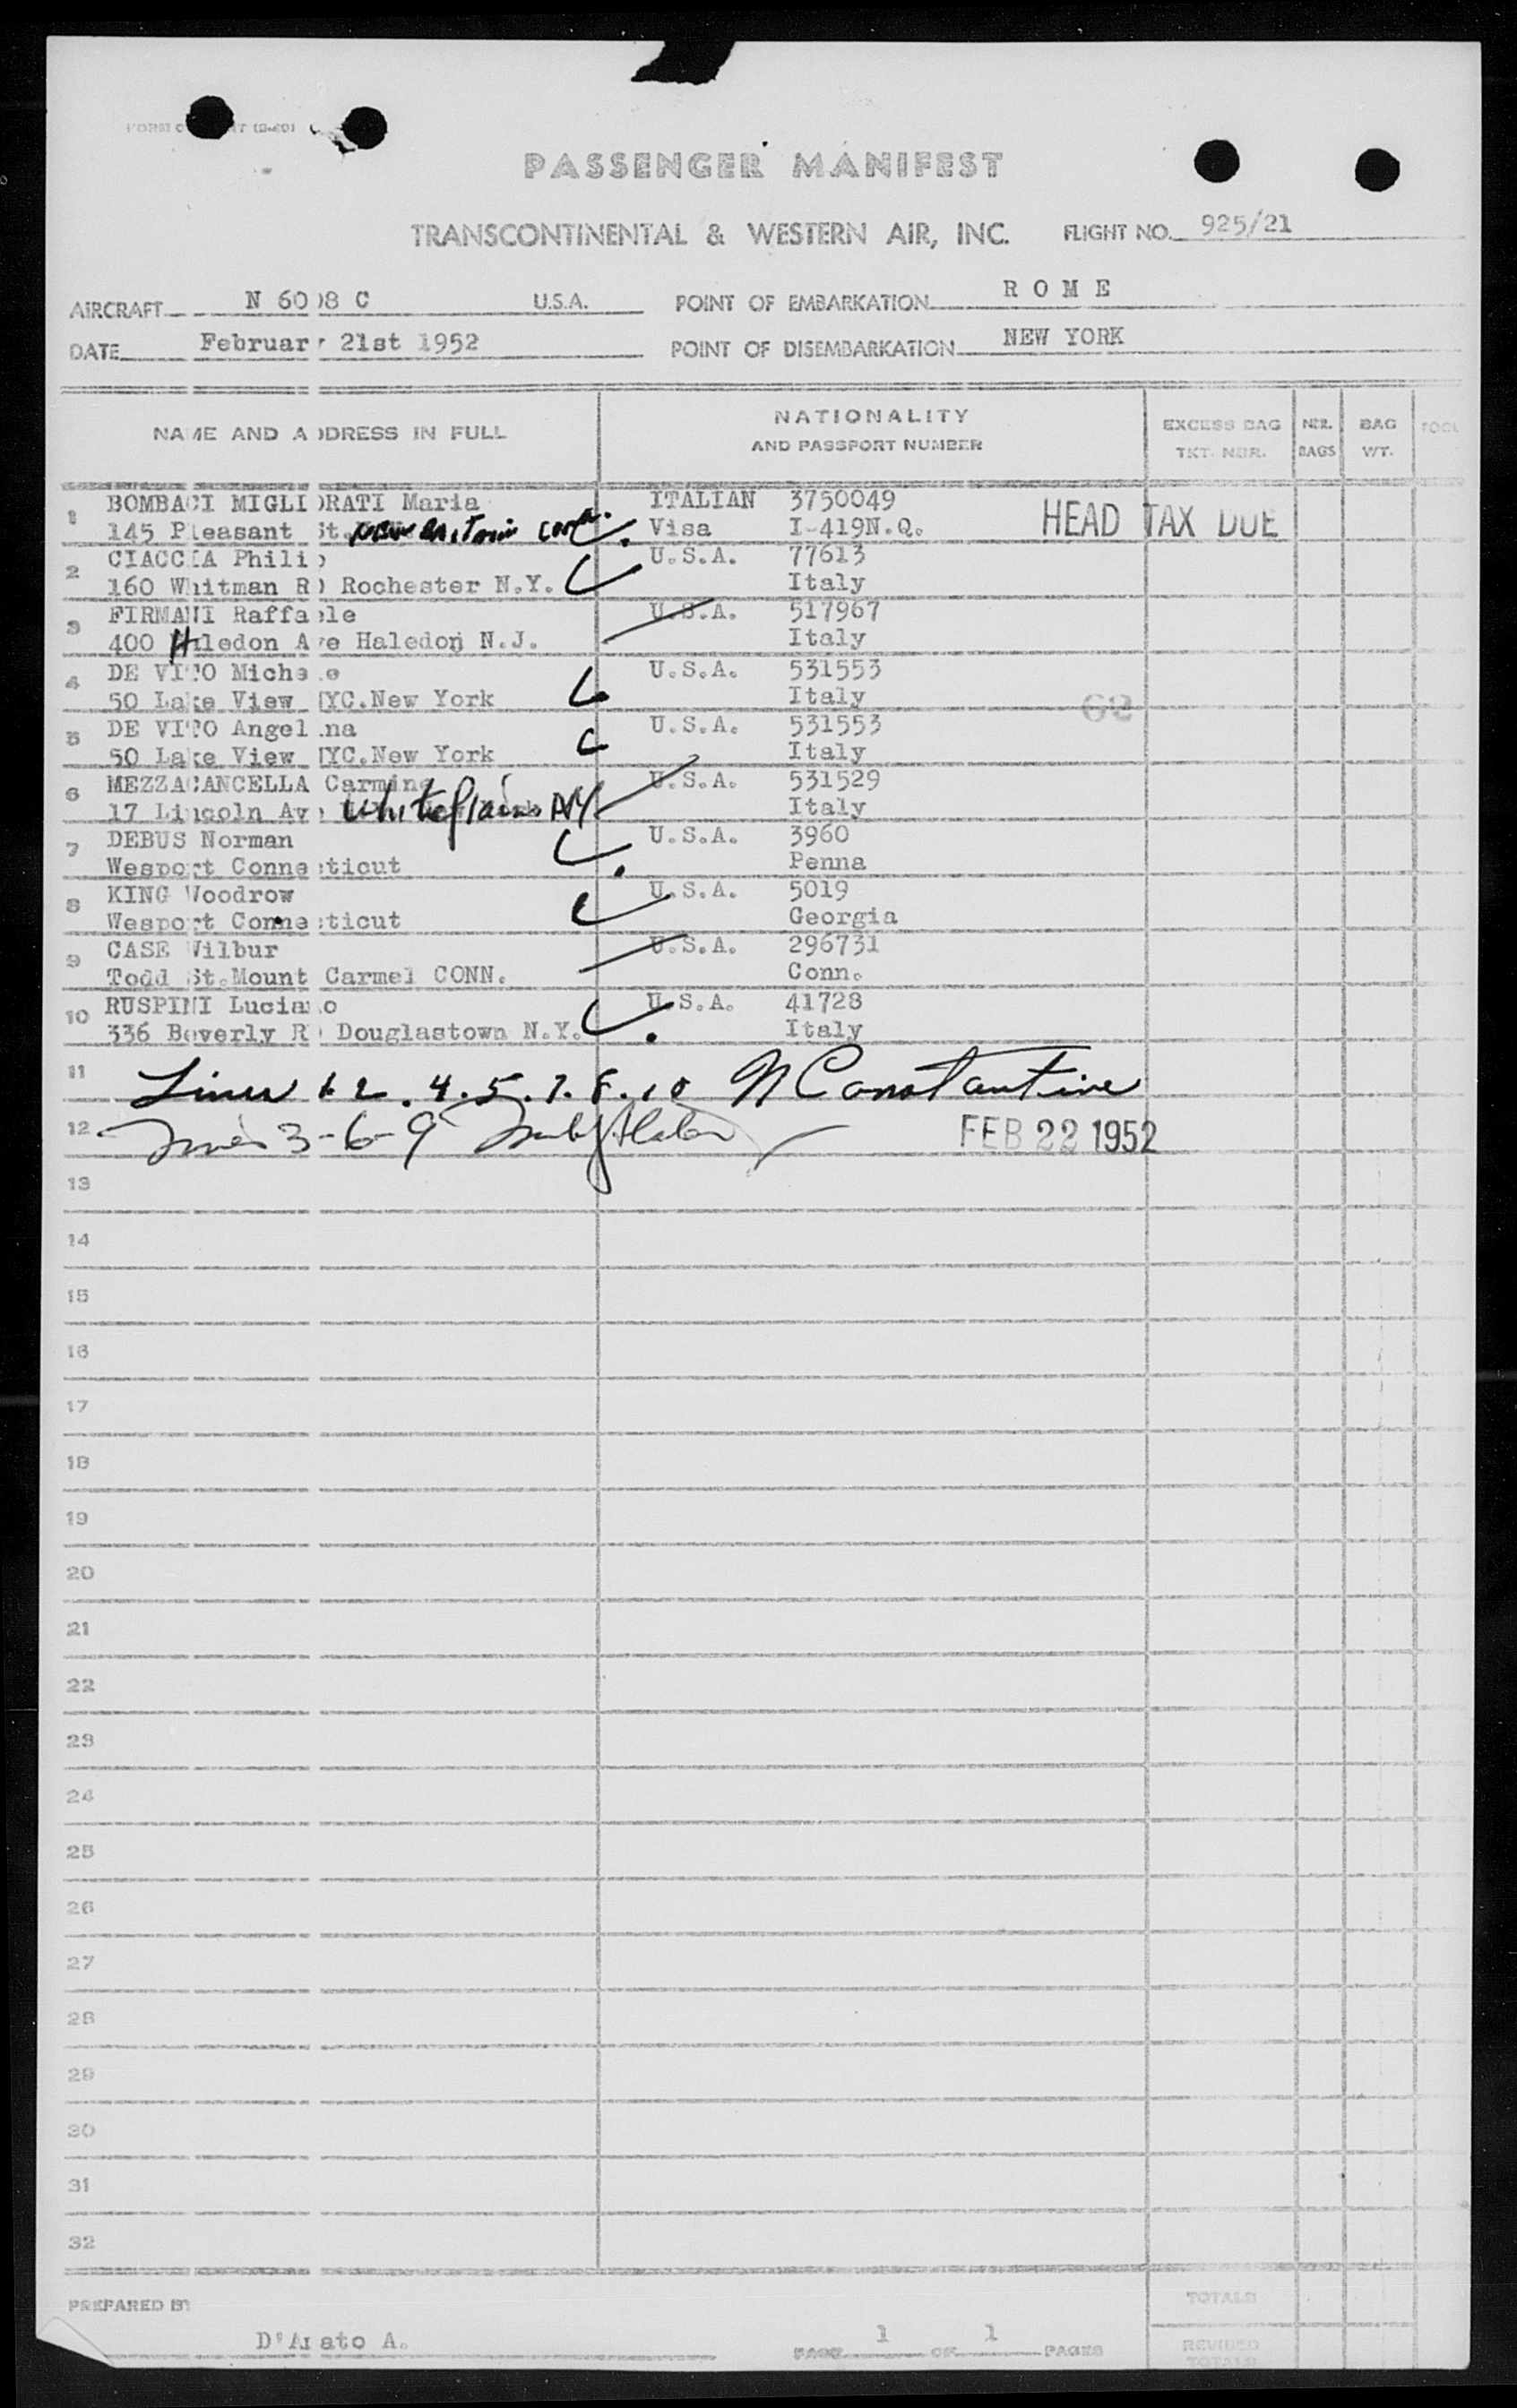 PASSENGER MANIFEST
TRANSCONTINENTAL & WESTERN AIR, INC. FLIGHT NO. 925/21
AIRCRAFT N 6008 C U.S.A. POINT OF EMBARKATION ROME
DATE February 21st 1952 POINT OF DISEMBARKATION NEW YORK
NAME AND ADDRESS IN FULL NATIONALITY AND PASSPORT NUMBER EXCESS BAG TKT. NBR. NBR. BAGS BAG WT.
1 BOMBACI MIGLIORATI Maria ITALIAN 3750049
145 Pleasant St. New Britain Conn. Visa I-419N.Q. HEAD TAX DUE
2 CIACCIA Philip U.S.A. 77613
160 Whitman RD Rochester N.Y. Italy
3 FIRMANI Raffaele U.S.A. 517967
400 Haledon Ave Haledon N.J. Italy
4 DE VITO Michele U.S.A. 531553
50 Lake View NYC.New York Italy
62
5 DE VITO Angelina U.S.A. 531553
50 Lake View NYC.New York Italy
6 MEZZACANCELLA Carmine U.S.A. 531529
17 Lincoln Ave White Plains NY Italy
7 DEBUS Norman U.S.A. 3960
Wesport Connecticut Penna
8 KING Woodrow U.S.A. 5019
Wesport Connecticut Georgia
9 CASE Wilbur U.S.A. 296731
Todd St.Mount Carmel CONN. Conn.
10 RUSPINI Luciano U.S.A. 41728
336 Beverly RD Douglastown N.Y. Italy
11 Lines 1.2.4.5.7.8.10 N Constantine
12 Lines 3-6-9 FEB 22 1952
13
14
15
16
17
18
19
20
21
22
23
24
25
26
27
28
29
30
31
32
PREPARED BY TOTALS
D'Amato A. PAGE 1 OF 1 PAGES REVISED TOTALS